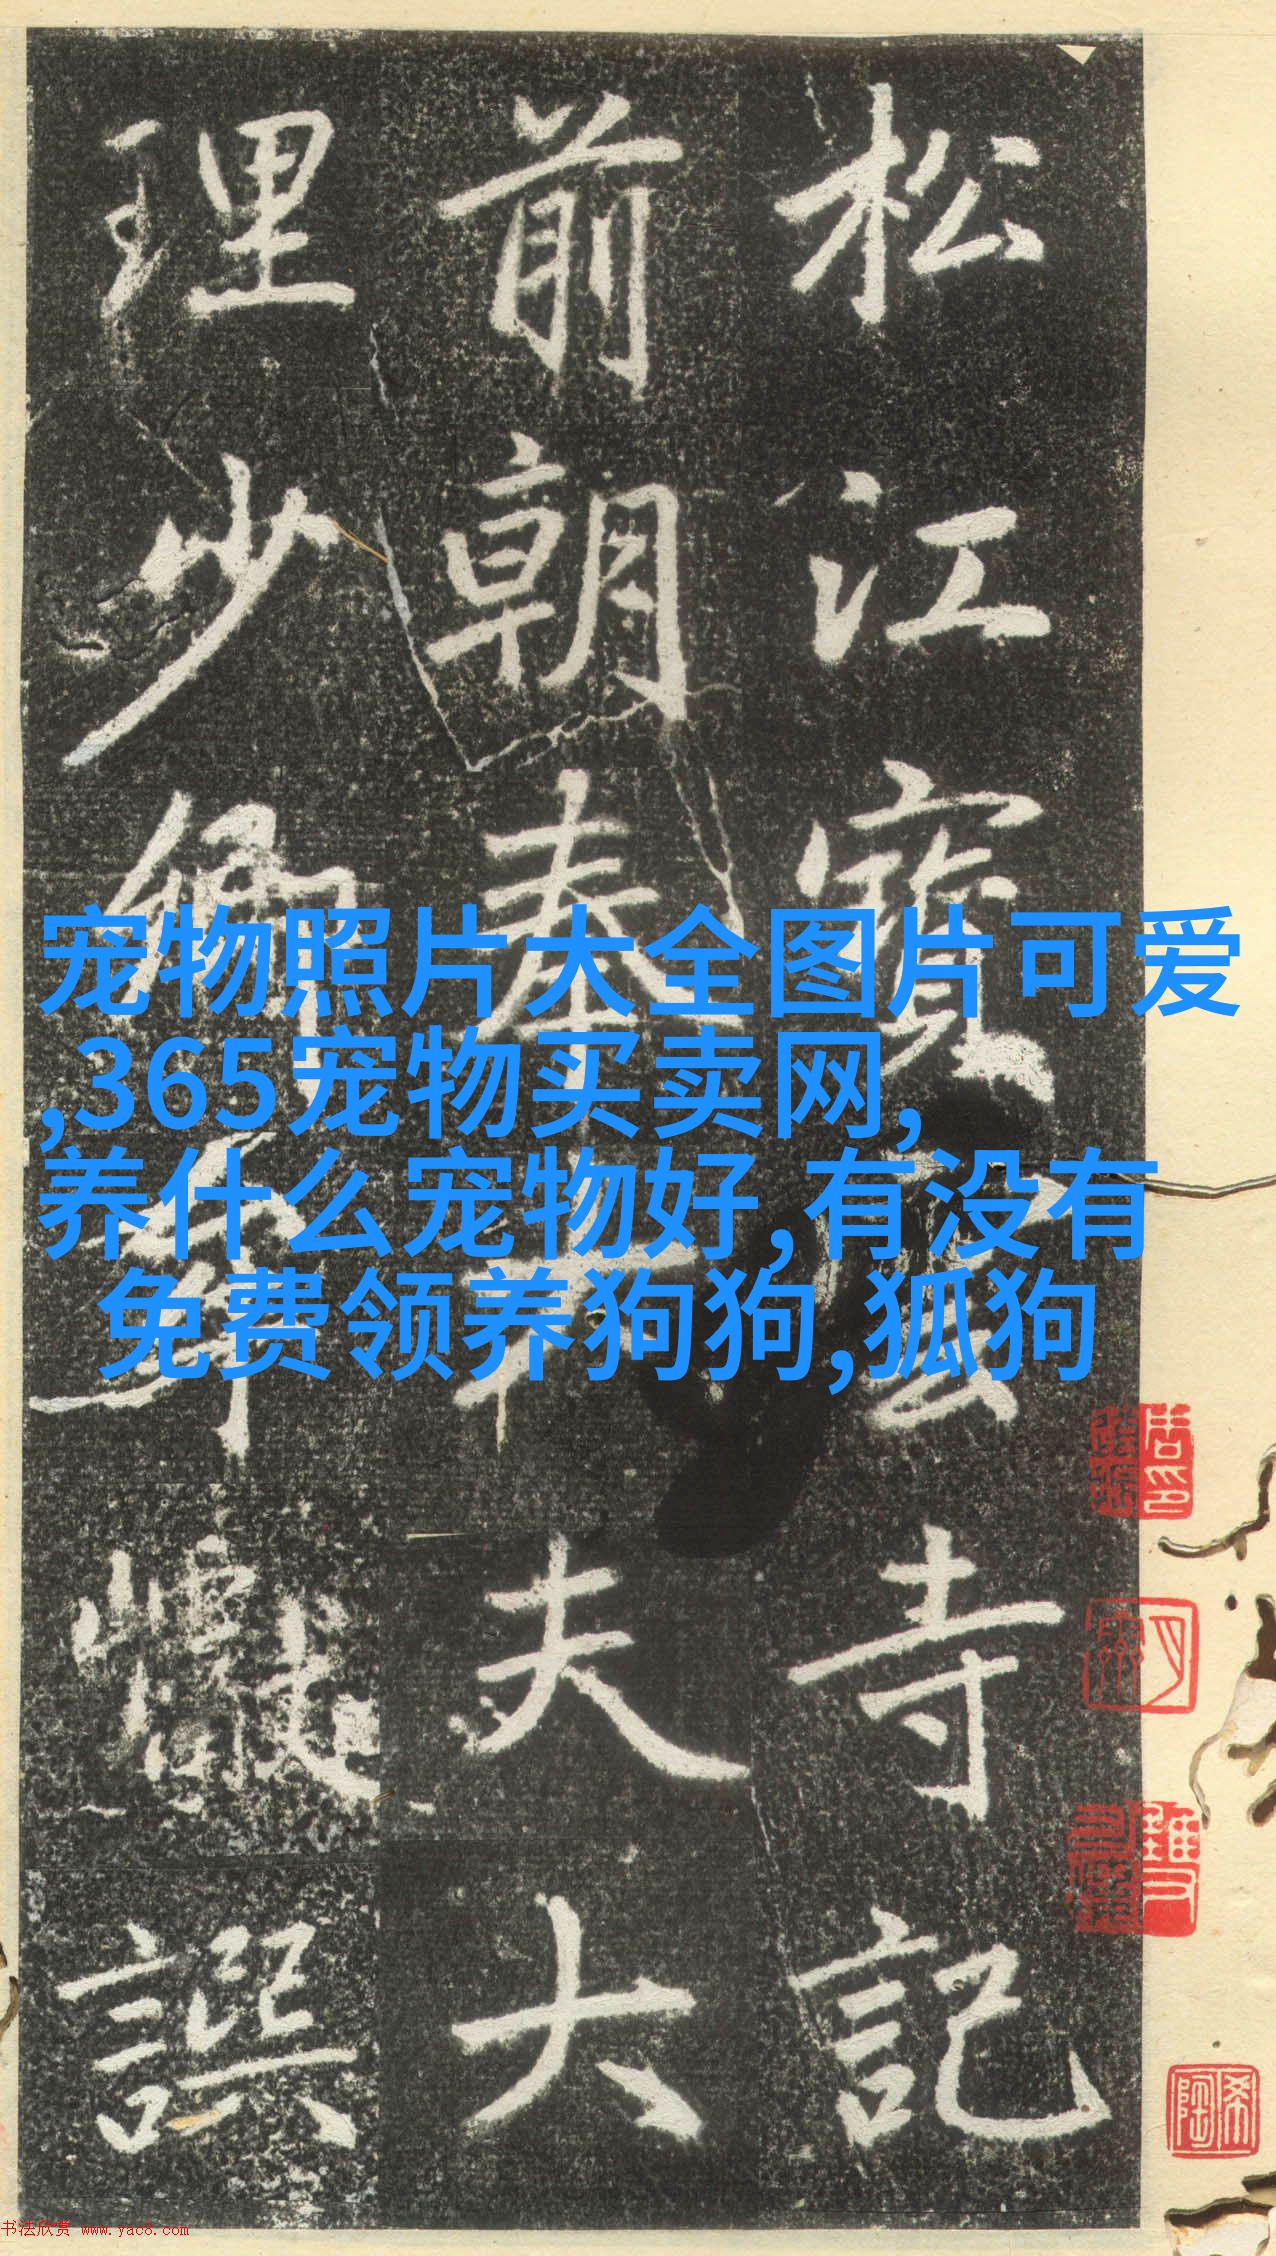 松江寶雲寺記
前朝奉大夫大
理少卿牟巘譔
宠物照片大全图片可爱
,365宠物买卖网,
养什么宠物好,有没有
免费领养狗狗,狐狗
书法欣赏 www.yac8.com